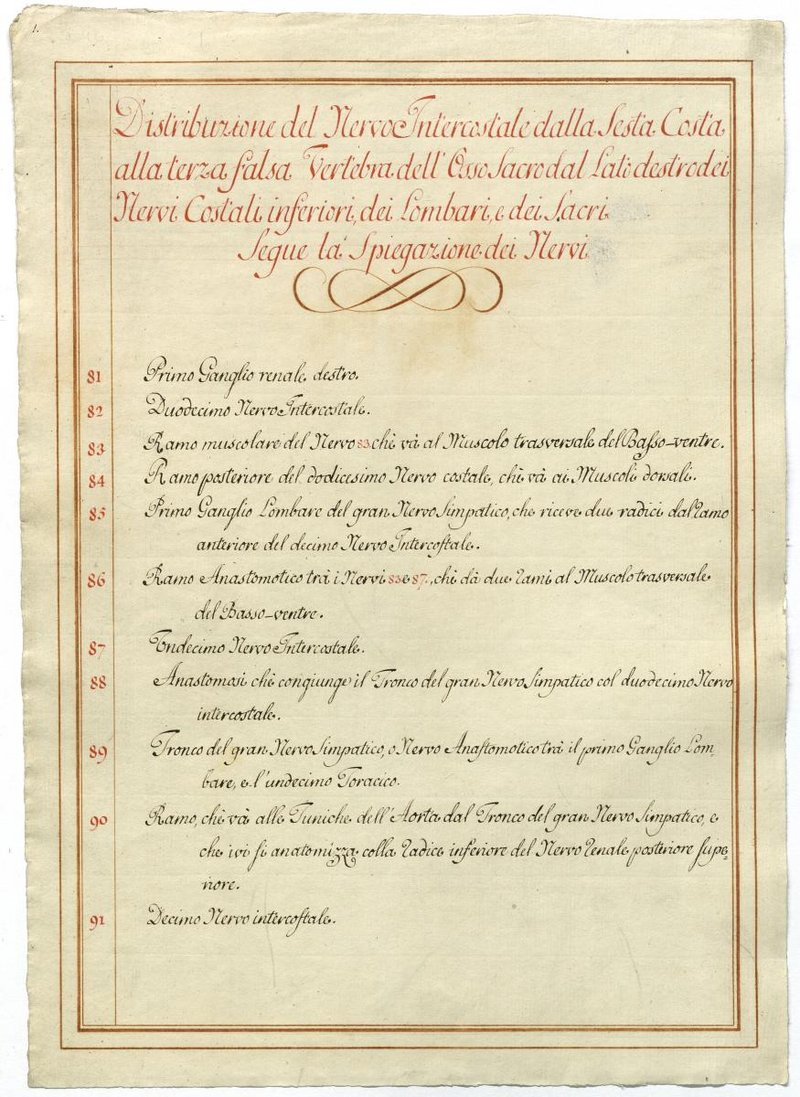 1.
Distribuzione del Nervo Intercostale dalla Sesta Costa
alla terza falsa Vertebra dell' Osso Sacro dal Lato destro dei
Nervi Costali inferiori, dei Lombari, e dei Sacri
Segue la Spiegazione dei Nervi
81 Primo Ganglio renale destro.
82 Duodecimo Nervo Intercostale.
83 Ramo muscolare del Nervo 83 chè và al Muscolo trasversale del Basso-ventre.
84 Ramo posteriore del dodicesimo Nervo costale, chè và ai Muscoli dorsali.
85 Primo Ganglio Lombare del gran Nervo Simpatico, che riceve due radici dal ramo
anteriore del decimo Nervo Intercostale.
86 Ramo Anastomotico trà i Nervi 83 e 87, chè dà due rami al Muscolo trasversale
del Basso-ventre.
87 Undecimo Nervo Intercostale.
88 Anastomosi chè congiunge il Tronco del gran Nervo Simpatico col duodecimo Nervo
intercostale.
89 Tronco del gran Nervo Simpatico, o Nervo Anastomotico trà il primo Ganglio Lom-
bare, e l'undecimo Toracico.
90 Ramo, chè và alle Tuniche dell'Aorta dal Tronco del gran Nervo Simpatico, e
che ivi si anatomizza colla radice inferiore del Nervo Renale posteriore supe-
riore.
91 Decimo Nervo intercostale.